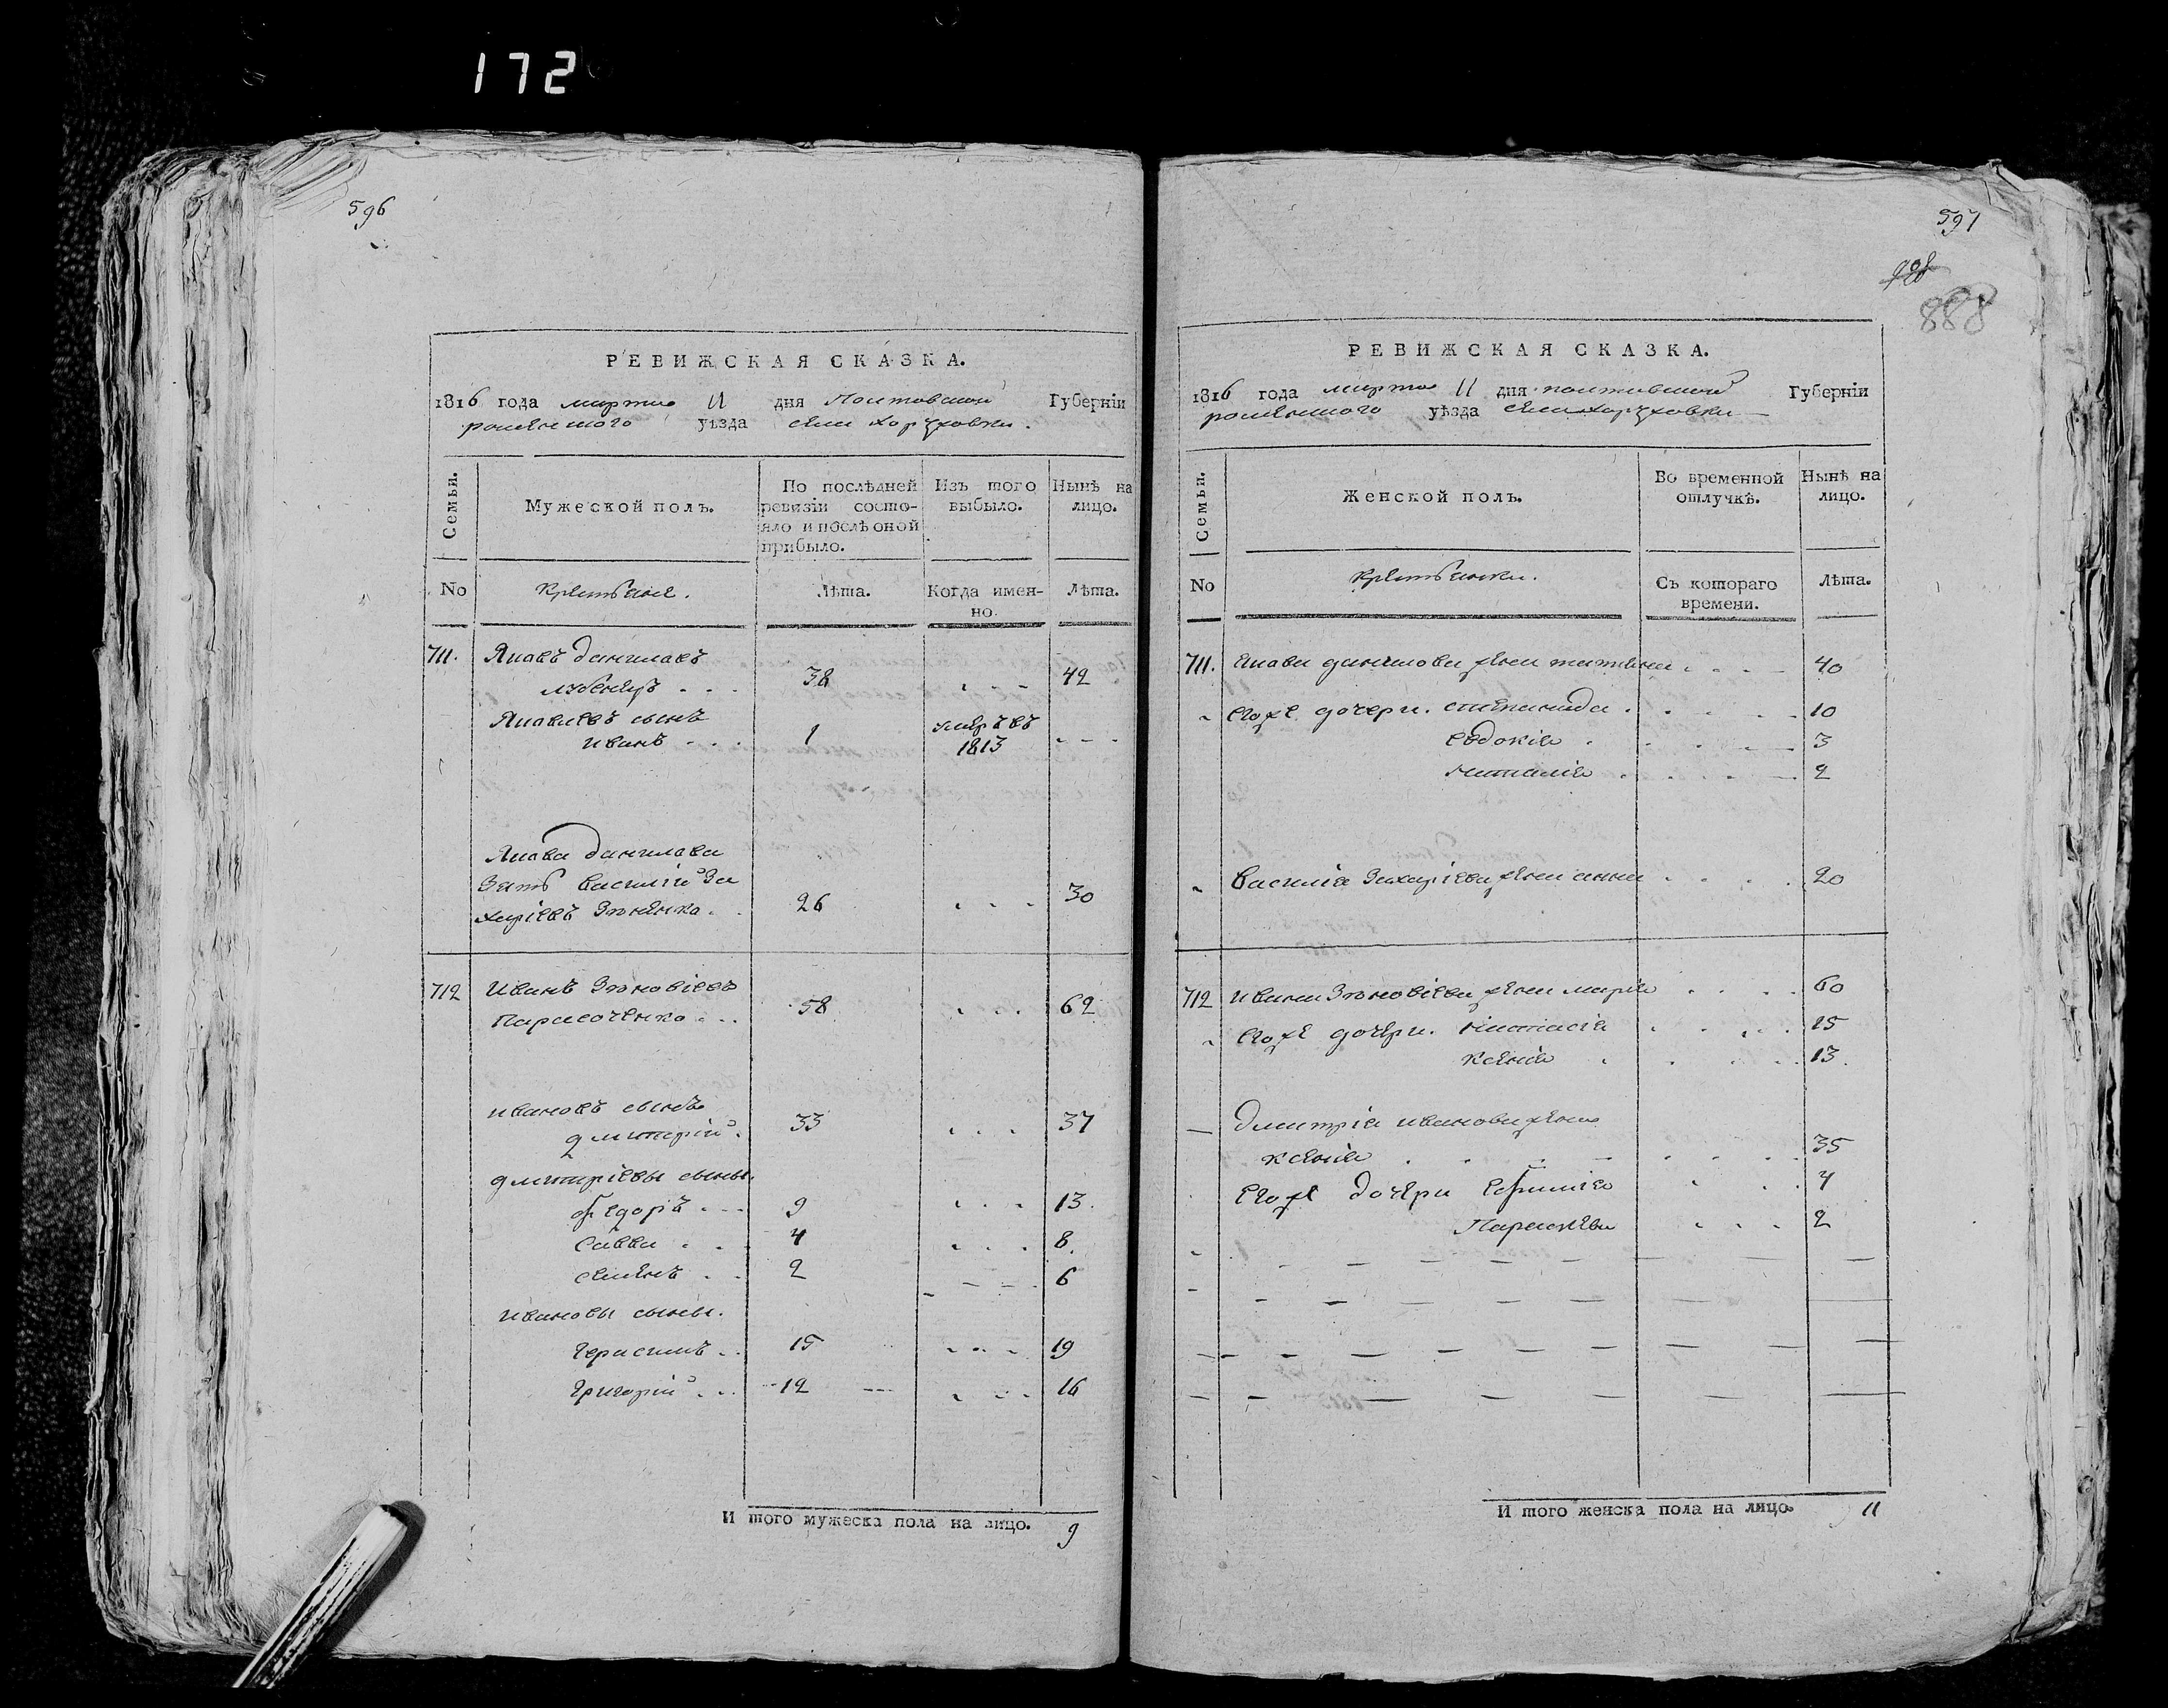 172
596
РЕВИЖСКАЯ СКАЗКА.
1816 года марта 11 дня Полтавской Губерніи
роменского уѣзда села Хоружовки.
Семьи.
Мужеской полъ.
По послѣдней ревизіи состояло и послѣ оной прибыло.
Изъ того выбыло.
Нынѣ на лицо.
No
Лѣта.
Когда именно.
Лѣта.
711. Яковъ даниловъ
38 . . . 42
Яковлевъ сынъ
иванъ . . . 1 . . .
1813
Якова данилова
Зять василій За
харіевъ . . 26 . . . 30
712 Иванъ Зѣновіевъ
58 . . . 62
ивановъ сынъ
дмитрій . 33 . . . 37
дмитріевы сыны.
федоръ . . . 9 . . . 13.
Савва . . . 4 . . . 8.
семенъ . . 2 6
ивановы сыны.
герасимъ . . 15 . . . 19
григорій . . . 12 . . . 16
И того мужеска пола на лицо. 9
597
888
РЕВИЖСКАЯ СКАЗКА.
1816 года марта 11 дня полтавской Губерніи
роменского уѣзда села хоружовки
Семьи.
Женской полъ.
Во временной отлучкѣ.
Нынѣ на лицо.
No
Съ котораго времени.
Лѣта.
711. Якова данилова жена татіяна . . . . 40
Егоже дочери. степанида . . . . 10
евдокія . . . . 3
наталія . . . . 2
василія Захаріева жена анна . . . . 20
712 ивана Зѣновіева жена марія . . . . 60
Егоже дочери. настасія . . . . 15
ксенія . . . . 13.
дмитрія иванова жена
ксенія . . . . 35
Егоже дочери Ефимія . . . 4
Параскева . . . 2
И того женска пола на лицо. 11